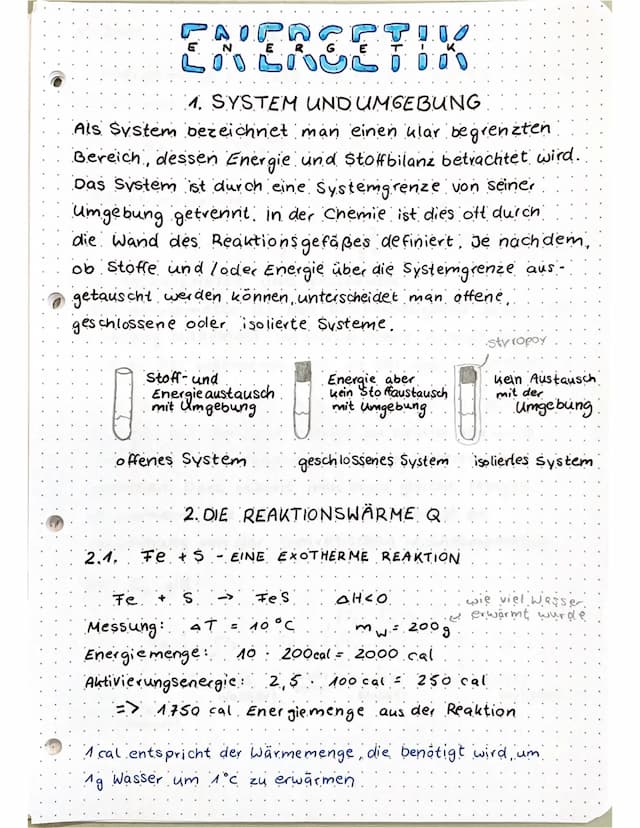 ENERGETIK
ENERGETIK
1. SYSTEM UND UMGEBUNG
Als System bezeichnet man einen klar begrenzten
Bereich, dessen Energie und Stoffbilanz betrachtet wird.
Das System ist durch eine Systemgrenze von seiner
Umgebung getrennt. In der Chemie ist dies oft durch
die Wand des Reaktionsgefäßes definiert. Je nachdem,
ob Stoffe und /oder Energie über die Systemgrenze aus-
getauscht werden können, unterscheidet man offene,
geschlossene oder isolierte Systeme.
Styropor
Stoff- und
Energieaustausch
mit Umgebung
offenes System
Energie aber
kein Stoffaustausch
mit Umgebung
geschlossenes System
kein Austausch
mit der
Umgebung
isoliertes System
2. DIE REAKTIONSWÄRME Q
2.1. Fe + S - EINE EXOTHERME REAKTION
Fe + S → FeS ΔH<0
wie viel Wasser
erwärmt wurde
Messung: ΔT = 10°C m_W = 200g
Energiemenge: 10 · 200cal = 2000 cal
Aktivierungsenergie: 2,5 · 100cal = 250 cal
=> 1750 cal Energiemenge aus der Reaktion
1 cal entspricht der Wärmemenge, die benötigt wird, um
1g Wasser um 1°C zu erwärmen